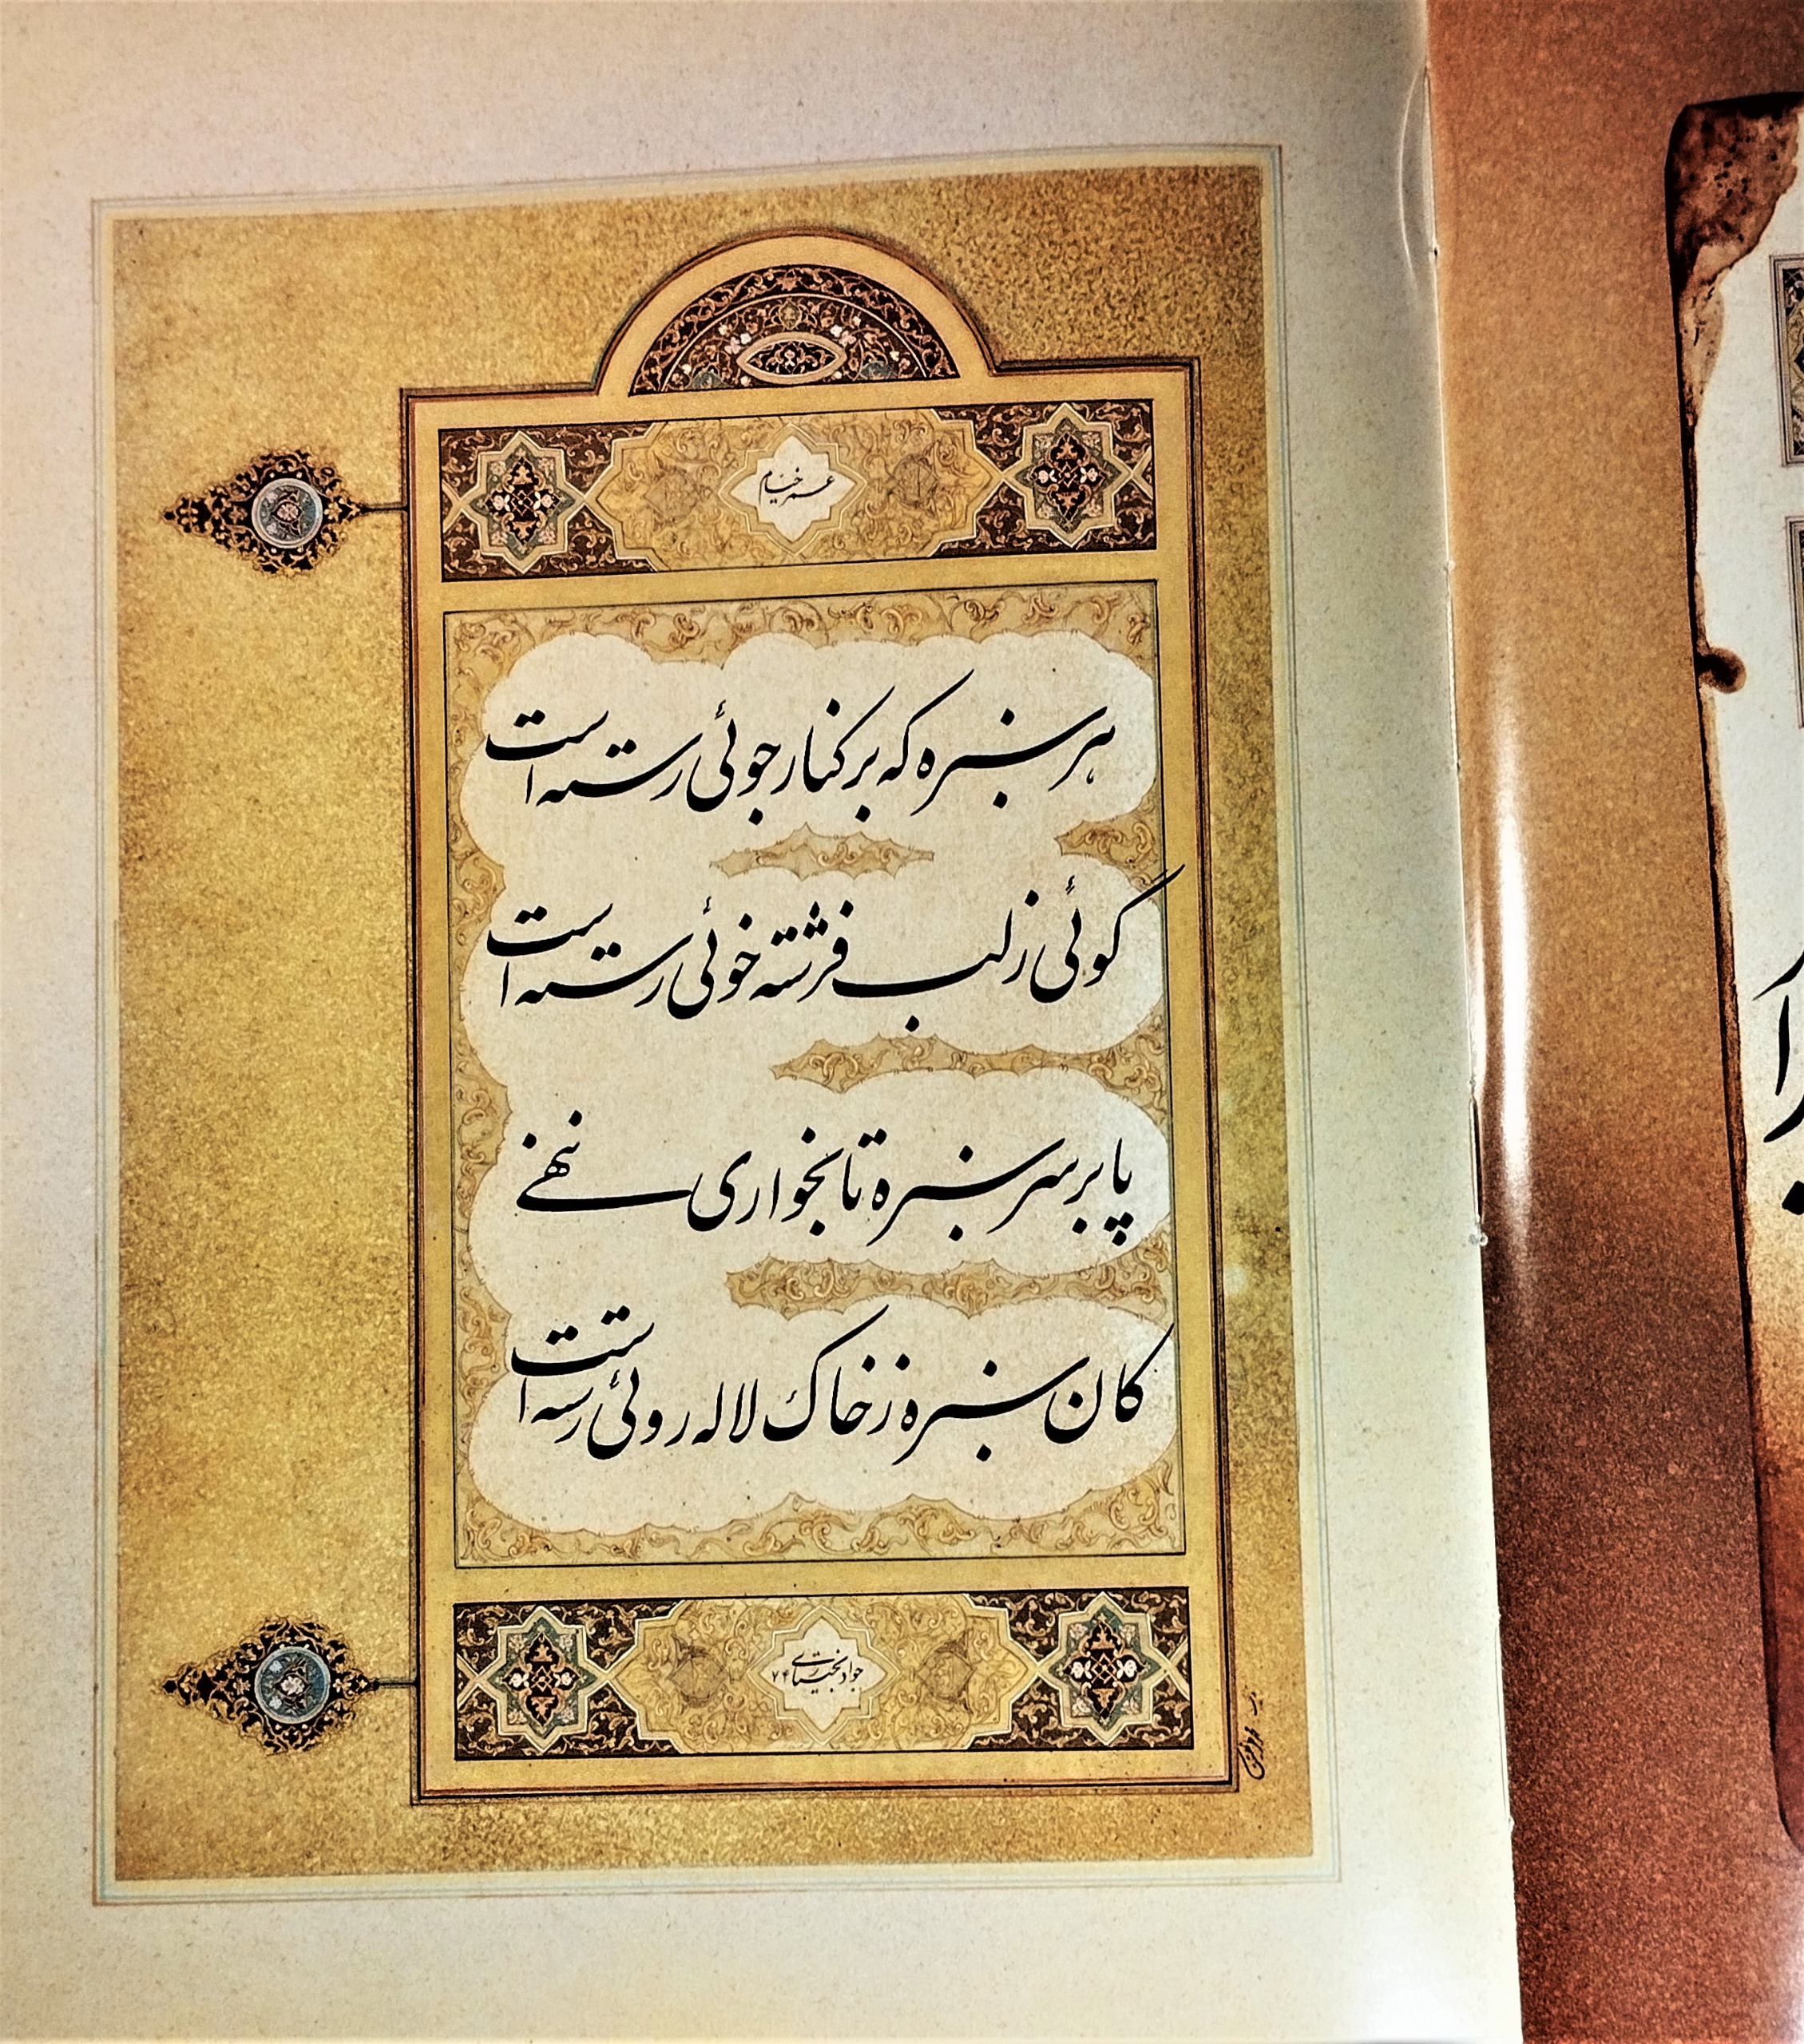 عمر خیام
هر سبزه که بر کنار جوئی رسته است
گوئی ز لب فرشته خوئی رسته است
پا بر سر سبزه تا بخواری ننهی
کان سبزه ز خاک لاله روئی رسته است
جواد بختیاری ۷۴